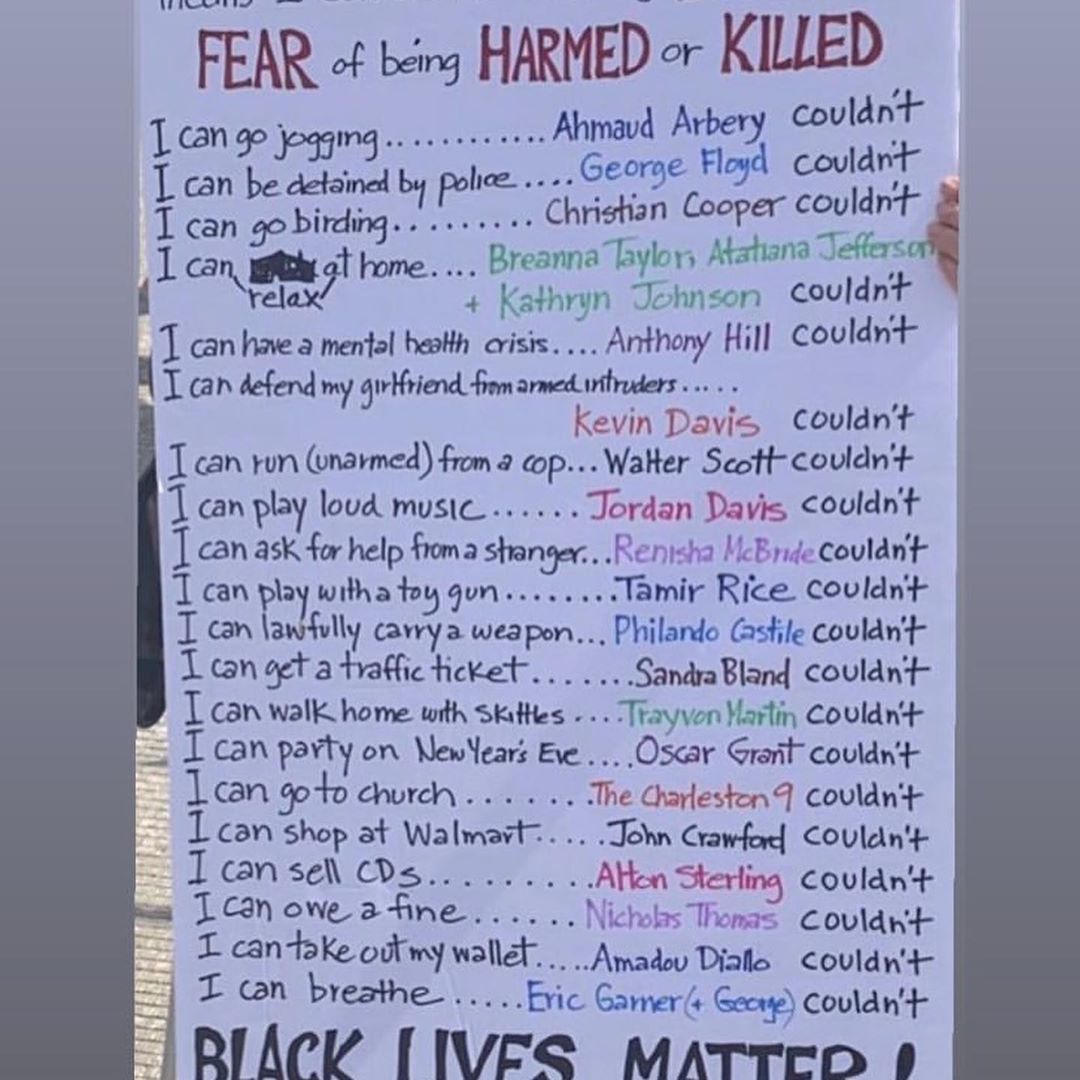 FEAR of being HARMED or KILLED
I can go jogging........... Ahmaud Arbery couldn't
I can be detained by police.... George Floyd couldn't
I can go birding......... Christian Cooper couldn't
I can relax at home.... Breanna Taylor, Atatiana Jefferson
+ Kathryn Johnson couldn't
I can have a mental health crisis.... Anthony Hill couldn't
I can defend my girlfriend from armed intruders.....
Kevin Davis couldn't
I can run (unarmed) from a cop... Walter Scott couldn't
I can play loud music...... Jordan Davis couldn't
I can ask for help from a stranger... Renisha McBride couldn't
I can play with a toy gun........ Tamir Rice couldn't
I can lawfully carry a weapon... Philando Castile couldn't
I can get a traffic ticket....... Sandra Bland couldn't
I can walk home with Skittles .... Trayvon Martin couldn't
I can party on New Year's Eve.... Oscar Grant couldn't
I can go to church....... The Charleston 9 couldn't
I can shop at Walmart..... John Crawford couldn't
I can sell CDs......... Alton Sterling couldn't
I can owe a fine...... Nicholas Thomas couldn't
I can take out my wallet..... Amadou Diallo couldn't
I can breathe..... Eric Garner (+ George) couldn't
BLACK LIVES MATTER!